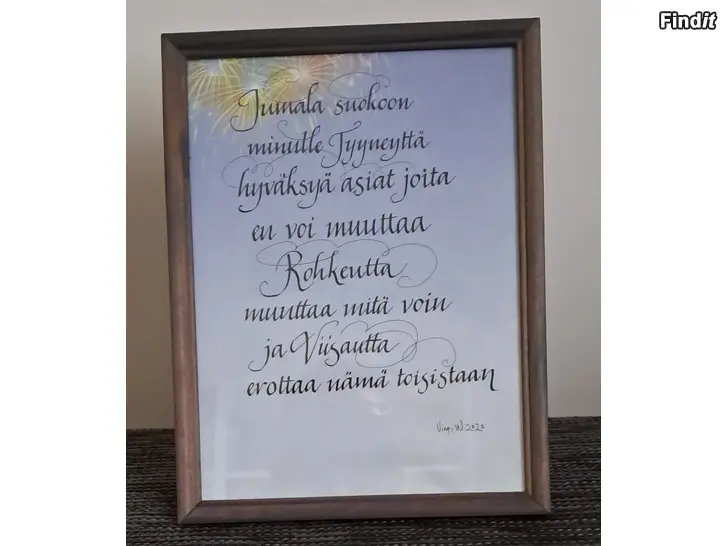 Findit
Jumala suokoon
minulle Tyyneyttä
hyväksyä asiat joita
en voi muuttaa
Rohkeutta
muuttaa mitä voin
ja Viisautta
erottaa nämä toisistaan
W. 2020